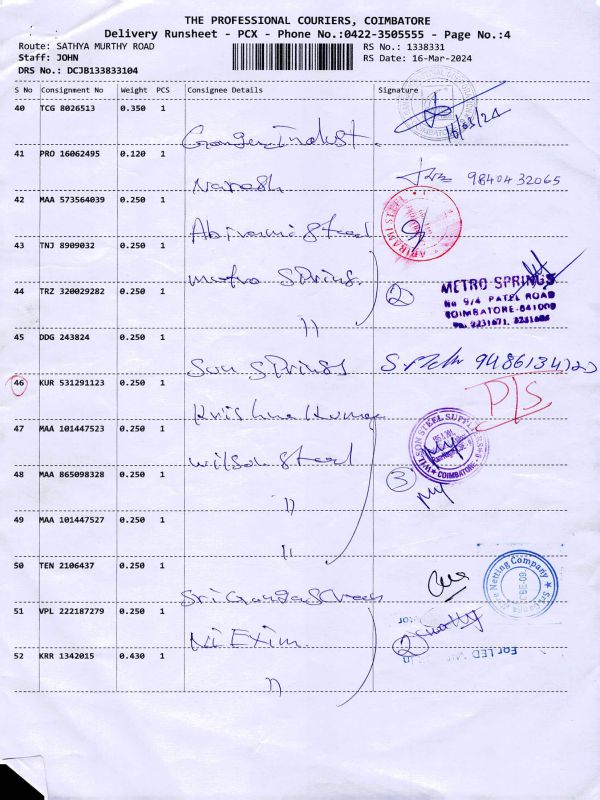 THE PROFESSIONAL COURIERS, COIMBATORE
Delivery Runsheet - PCX - Phone No.:0422-3505555 - Page No.:4
Route: SATHYA MURTHY ROAD
RS No.: 1338331
Staff: JOHN
RS Date: 16-Mar-2024
DRS No.: DCJB133833104
S No Consignment No Weight PCS Consignee Details Signature
40 TCG 8026513 0.350 1
16/03/24
41 PRO 16062495 0.120 1
Naresh 9840432065
42 MAA 573564039 0.250 1
Abirami Steel
ABIRAMI STEEL
43 TNJ 8909032 0.250 1
Metro Springs.
METRO SPRINGS
44 TRZ 320029282 0.250 1
2
No 9/4 PATEL ROAD
COIMBATORE-641009
" 
45 DDG 243824 0.250 1
Sun Springs
46 KUR 531291123 0.250 1
Krishna Kumar
47 MAA 101447523 0.250 1
Wilson Steel
WILSON STEEL
COIMBATORE
48 MAA 865098328 0.250 1
3
"
49 MAA 101447527 0.250 1
"
50 TEN 2106437 0.250 1
Netting Company
Sri
51 VPL 222187279 0.250 1
Ni Exim
2
52 KRR 1342015 0.430 1
"